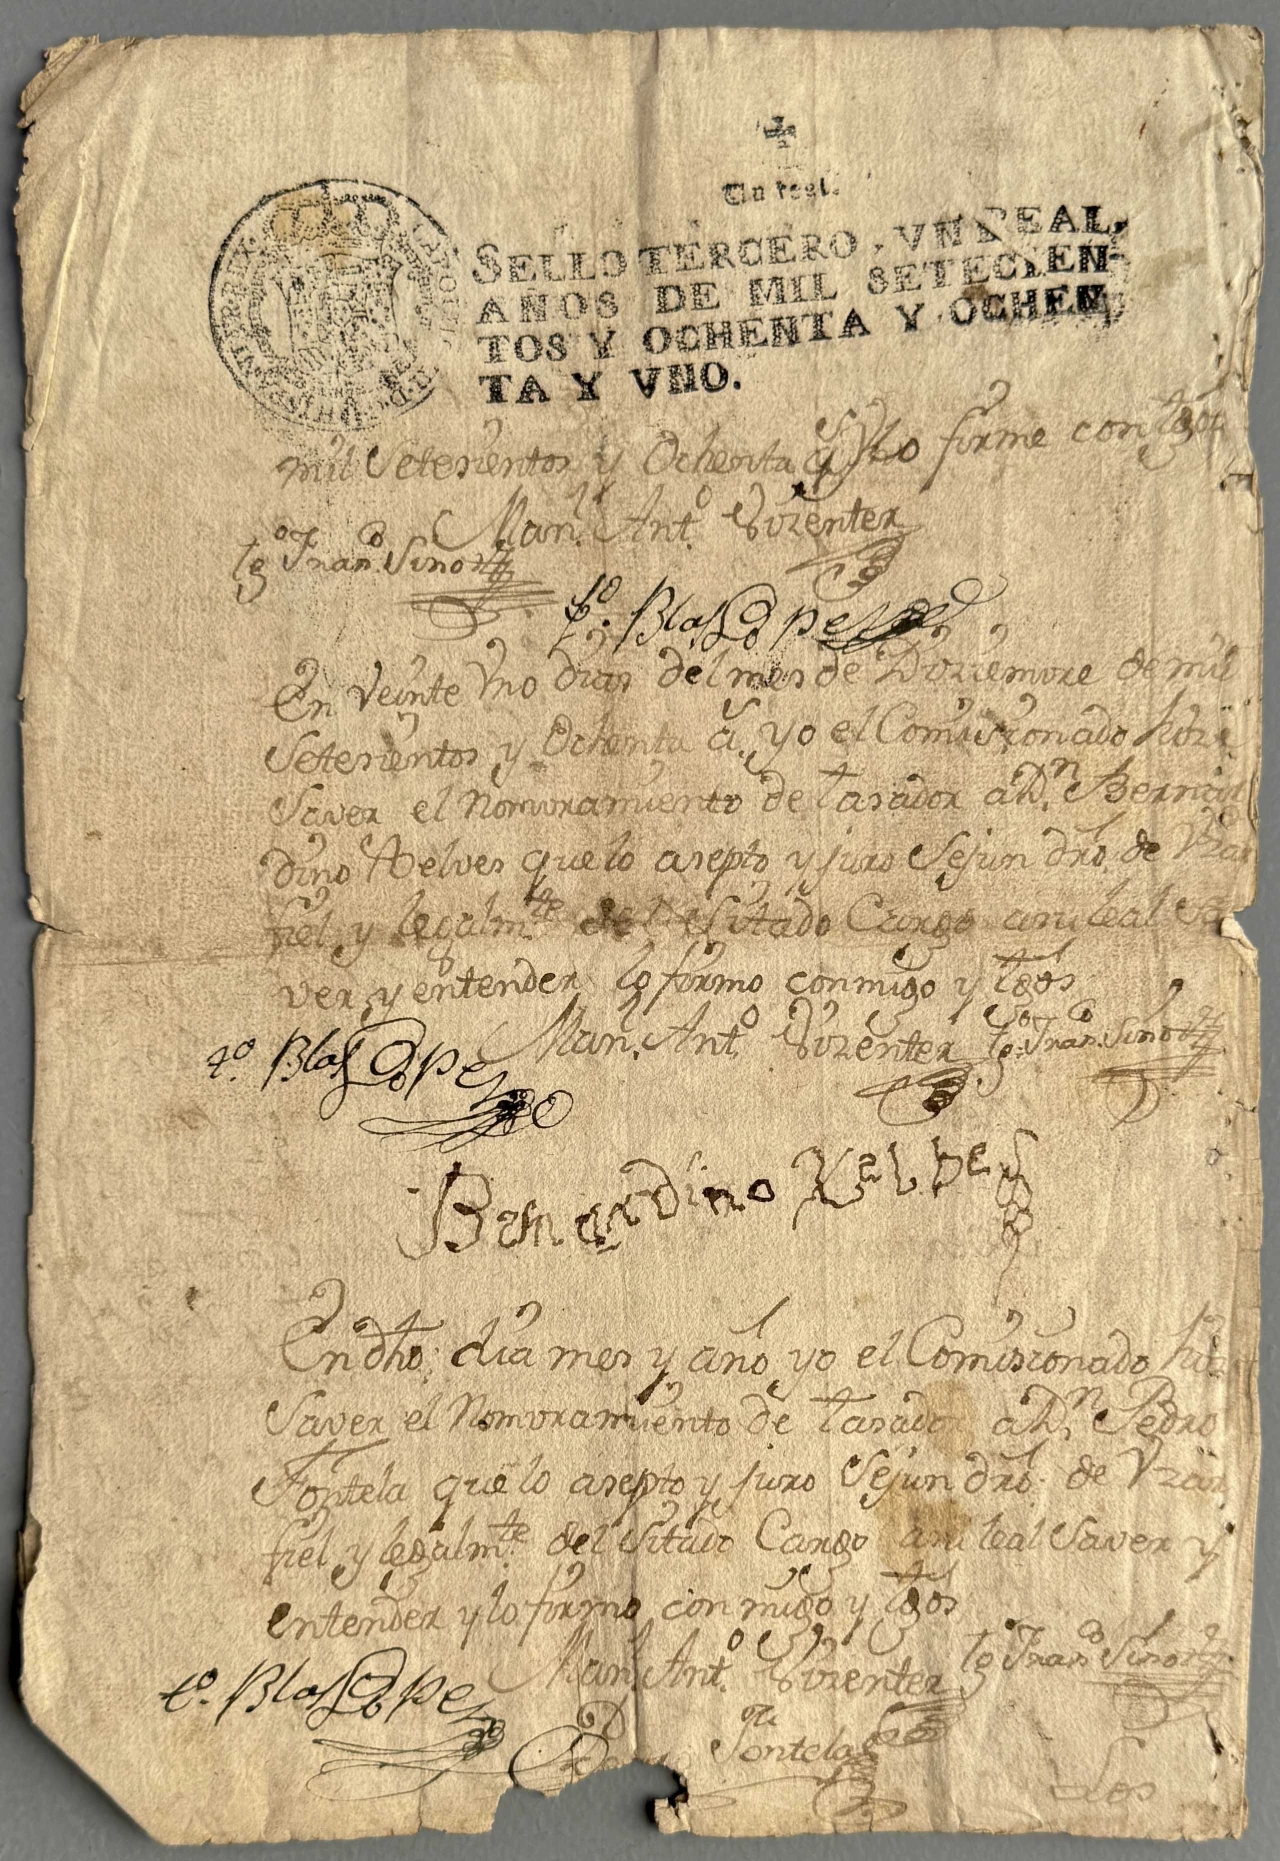 Un real.
SELLO TERCERO, VN REAL,
AÑOS DE MIL SETECIEN-
TOS Y OCHENTA Y OCHEN
TA Y VNO.
mil Setesientos y Ochenta a.s Y lo firme con tg.os
Man.l Ant.o
tg.o Fran.co
t.o Blas Lopes
En veinte Vno dias del mes de Disiembre de mil
Setesientos y Ochenta a.s yo el Comisionado hise
Saver el Nomvramiento de tasador a D.n Bernar
dino Relves que lo asepto y juro Sejun dro. de Vzar
fiel y legalm.te del Sitado Cargo a su leal sa
ver y entender lo firmo conmigo y tgos
Man.l Ant.o
tg.o Fran.co
t.o Blas Lopes
Bernardino Relbes
En dho. dia mes y año yo el Comisionado hise
Saver el Nomvramiento de tasador a D.n Pedro
Fontela que lo asepto y juro Sejun dro. de Vzar
fiel y legalm.te del Sitado Cargo a su leal Saver y
entender y lo firmo conmigo y tgos
Man.l Ant.o
tg.o Fran.co
t.o Blas Lopes
Fontela
Los